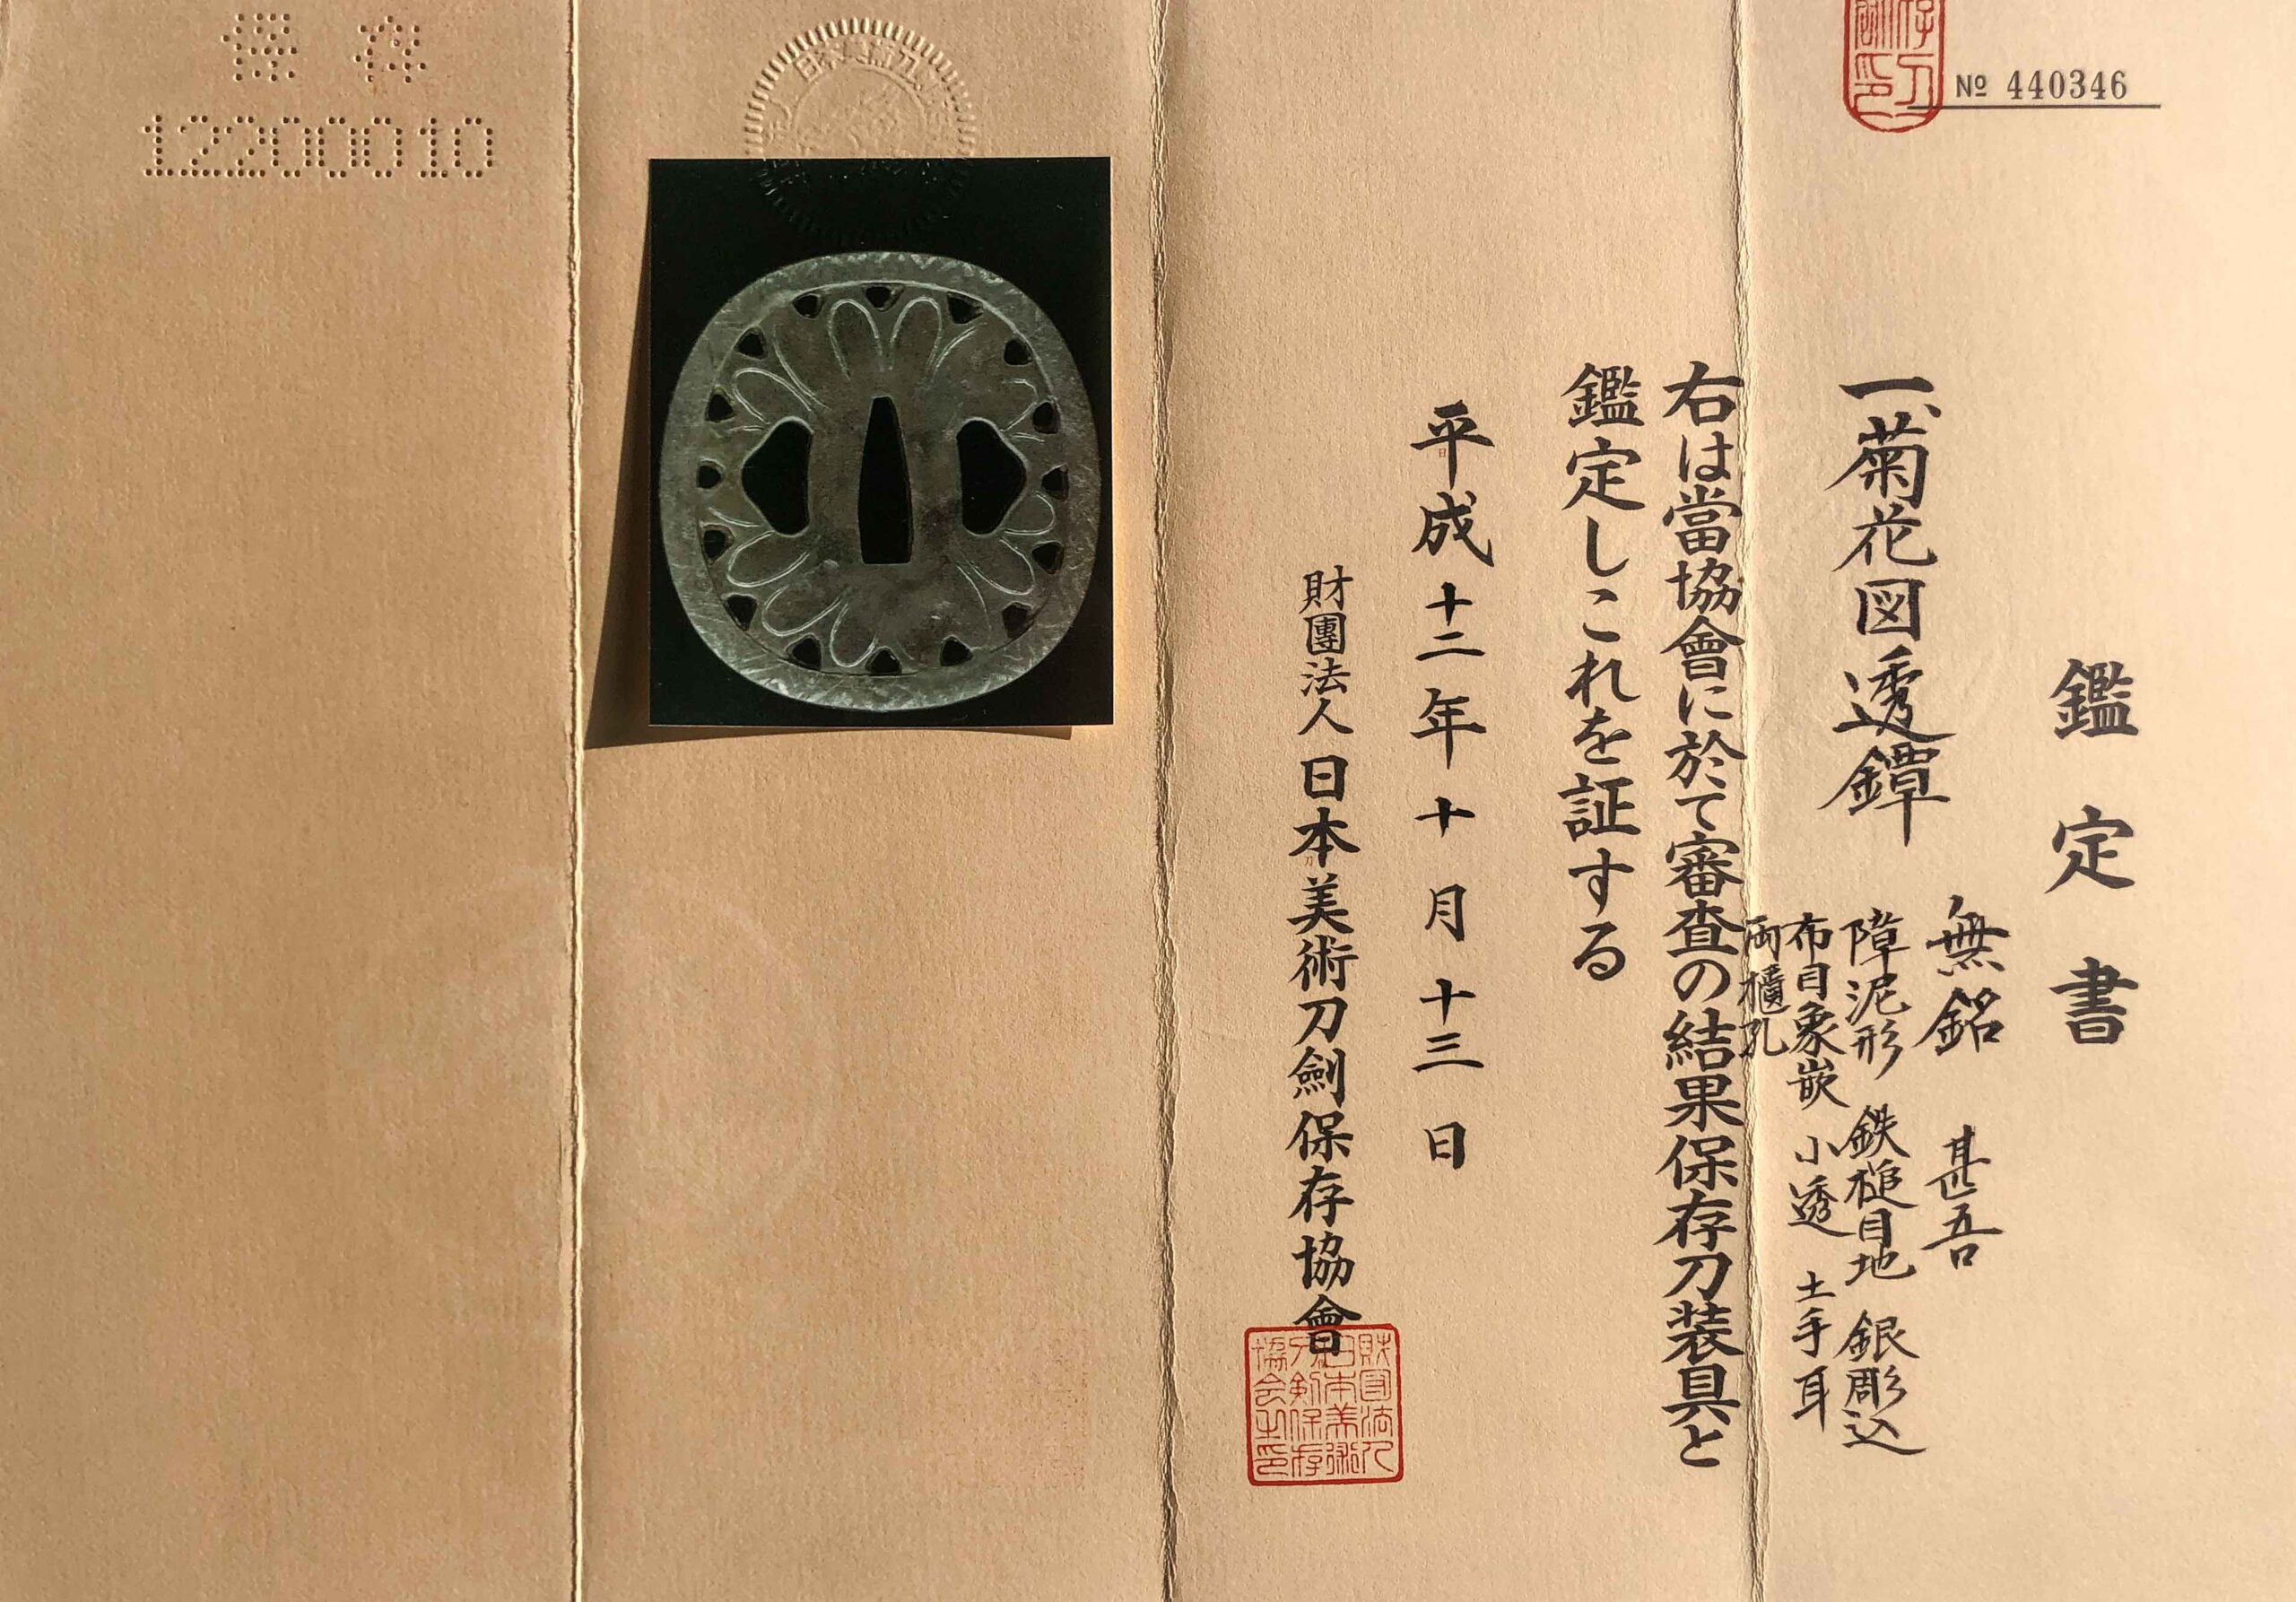 № 440346
鑑定書
一、菊花図透鐔
無銘 甚吾
障泥形 鉄槌目地 銀彫込
布目象嵌 小透 土手耳
両櫃孔
右は當協會に於て審査の結果保存刀装具と
鑑定しこれを証する
平成十二年十月十三日
財團法人 日本美術刀劍保存協會
財団法人
日本美術
刀剣保存
協会之印
保存
12200010